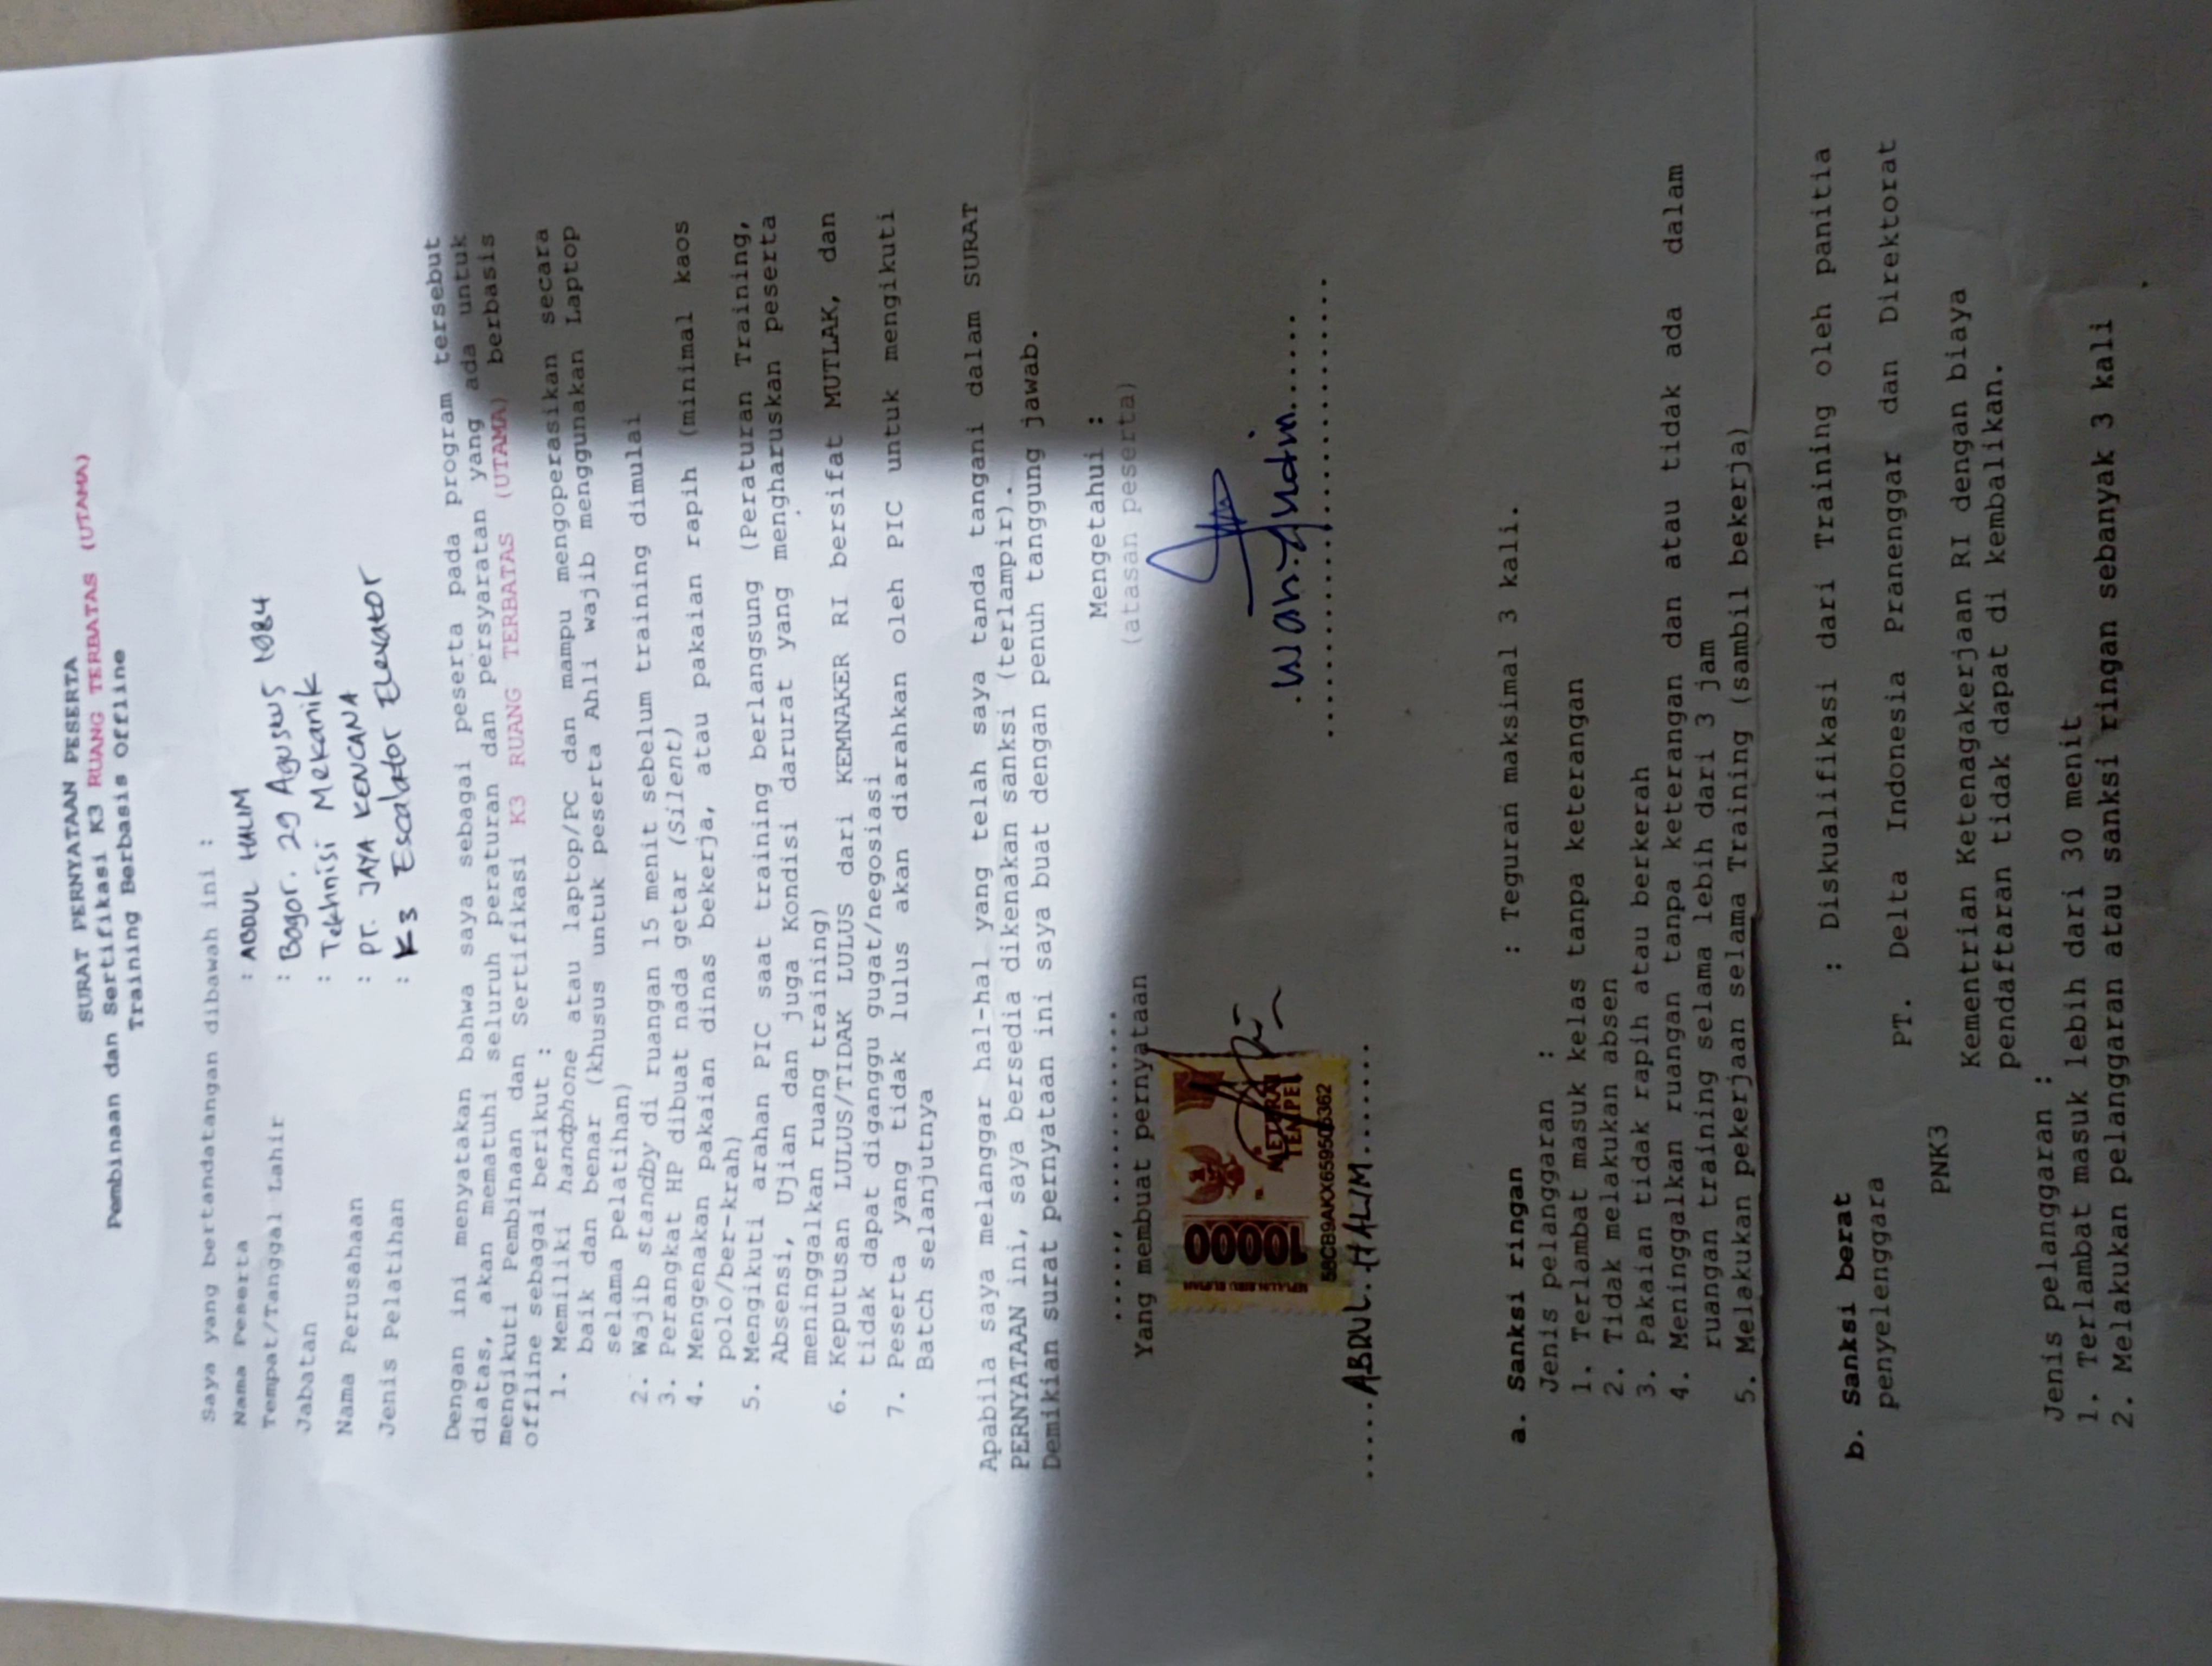 SURAT PERNYATAAN PESERTA
Pembinaan dan Sertifikasi K3 RUANG TERBATAS (UTAMA)
Training Berbasis Offline
Saya yang bertandatangan dibawah ini :
Nama Peserta : ABDUL HALIM
Tempat/Tanggal Lahir : Bogor. 29 Agustus 1984
Jabatan : Tekhnisi Mekanik
Nama Perusahaan : PT. JAYA KENCANA
Jenis Pelatihan : K3 Escalator Elevator
Dengan ini menyatakan bahwa saya sebagai peserta pada program tersebut
diatas, akan mematuhi seluruh peraturan dan persyaratan yang ada untuk
mengikuti Pembinaan dan Sertifikasi K3 RUANG TERBATAS (UTAMA) berbasis
offline sebagai berikut :
1. Memiliki handphone atau laptop/PC dan mampu mengoperasikan secara
baik dan benar (khusus untuk peserta Ahli wajib menggunakan Laptop
selama pelatihan)
2. Wajib standby di ruangan 15 menit sebelum training dimulai
3. Perangkat HP dibuat nada getar (Silent)
4. Mengenakan pakaian dinas bekerja, atau pakaian rapih (minimal kaos
polo/ber-krah)
5. Mengikuti arahan PIC saat training berlangsung (Peraturan Training,
Absensi, Ujian dan juga Kondisi darurat yang mengharuskan peserta
meninggalkan ruang training)
6. Keputusan LULUS/TIDAK LULUS dari KEMNAKER RI bersifat MUTLAK, dan
tidak dapat diganggu gugat/negosiasi
7. Peserta yang tidak lulus akan diarahkan oleh PIC untuk mengikuti
Batch selanjutnya
Apabila saya melanggar hal-hal yang telah saya tanda tangani dalam SURAT
PERNYATAAN ini, saya bersedia dikenakan sanksi (terlampir).
Demikian surat pernyataan ini saya buat dengan penuh tanggung jawab.
....., ............
Yang membuat pernyataan
Mengetahui :
(atasan peserta)
SEPULUH RIBU RUPIAH
10000
METERAI
TEMPEL
58CB9AKX659505362
.....ABDUL. HALIM.......
a. Sanksi ringan : Teguran maksimal 3 kali.
Jenis pelanggaran :
1. Terlambat masuk kelas tanpa keterangan
2. Tidak melakukan absen
3. Pakaian tidak rapih atau berkerah
4. Meninggalkan ruangan tanpa keterangan dan atau tidak ada dalam
ruangan training selama lebih dari 3 jam
5. Melakukan pekerjaan selama Training (sambil bekerja)
b. Sanksi berat : Diskualifikasi dari Training oleh panitia
penyelenggara
PT. Delta Indonesia Pranenggar dan Direktorat
PNK3
Kementrian Ketenagakerjaan RI dengan biaya
pendaftaran tidak dapat di kembalikan.
Jenis pelanggaran :
1. Terlambat masuk lebih dari 30 menit
2. Melakukan pelanggaran atau sanksi ringan sebanyak 3 kali